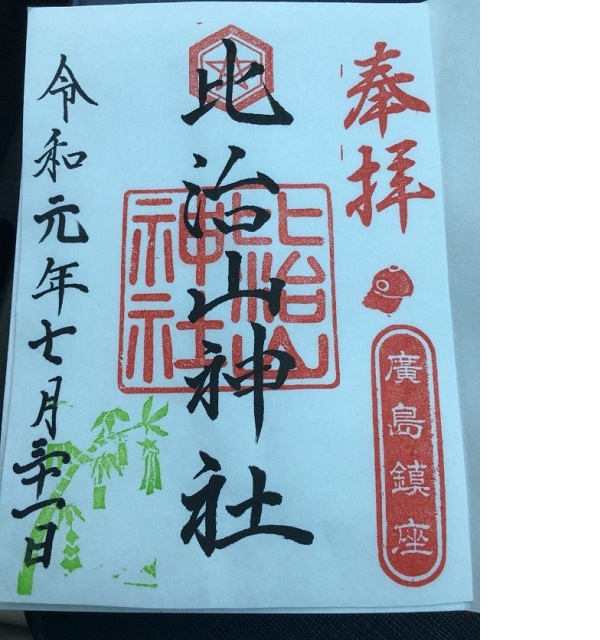 奉拝
廣島鎮座
比治山神社
比治山神社
令和元年七月三十一日